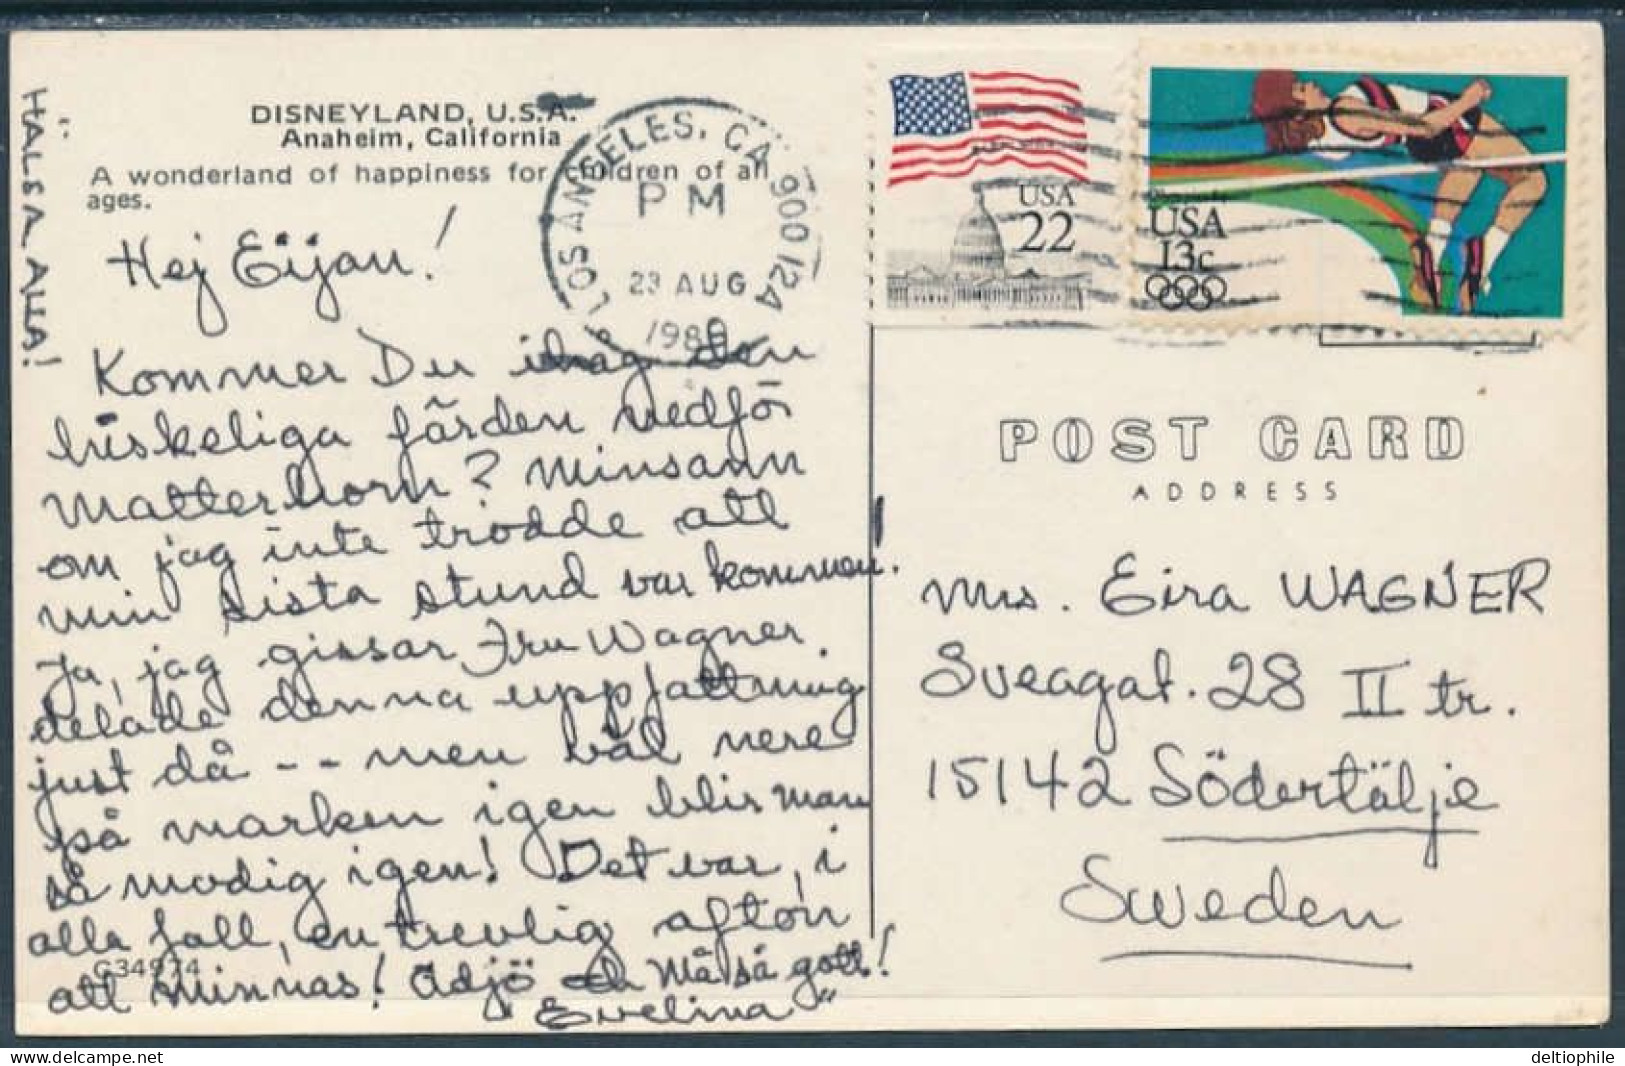 DISNEYLAND, U.S.A.
Anaheim, California
A wonderland of happiness for children of all
ages.
HÄLSA ALLA!
Hej Eijan!
Kommer Du ihåg den
hiskeliga färden nedför
Matterhorn? Minsann
om jag inte trodde att
min sista stund var kommen!
Ja, jag gissar Fru Wagner
delade denna uppfattning
just då -- men väl nere
på marken igen blir man
så modig igen! Det var, i
alla fall, en trevlig afton
att minnas! Adjö och Må så gott!
Evelina
G34974
LOS ANGELES, CA 900 124
PM
23 AUG
198
USA
22
USA
13c
POST CARD
ADDRESS
Mrs. Eira WAGNER
Sveagat. 28 II tr.
15142 Södertälje
Sweden
deltiophile